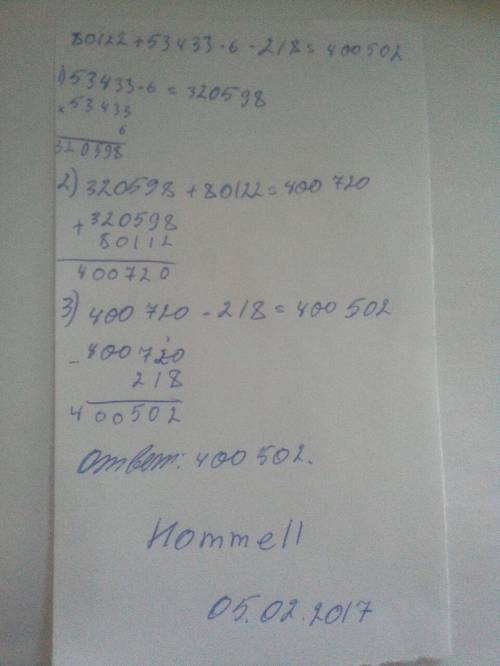 80122 + 53433 · 6 - 218 = 400502
1) 53433 · 6 = 320598
× 53433
6
320598
2) 320598 + 80122 = 400 720
+ 320598
80112
400720
3) 400 720 - 218 = 400 502
- 400720
218
400502
Ответ: 400 502.
Hommell
05.02.2017